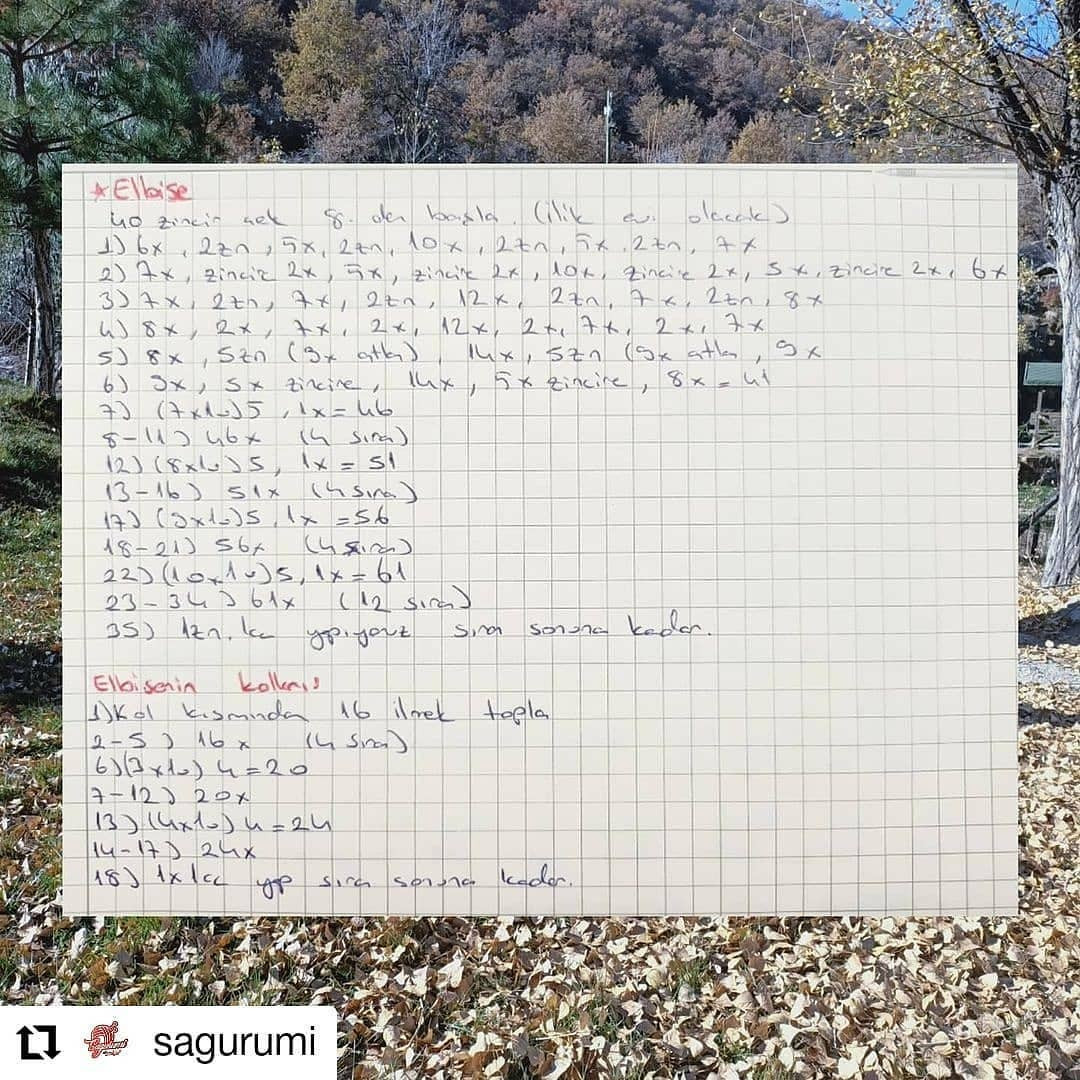 ★ Elbise
40 zincir çek 8. den başla. (ilik evi olacak)
1) 6x, 2zn, 5x, 2zn, 10x, 2zn, 5x, 2zn, 7x
2) 7x, zincire 2x, 5x, zincire 2x, 10x, zincire 2x, 5x, zincire 2x, 6x
3) 7x, 2zn, 7x, 2zn, 12x, 2zn, 7x, 2zn, 8x
4) 8x, 2x, 7x, 2x, 12x, 2x, 7x, 2x, 7x
5) 8x, 5zn (9x atla), 14x, 5zn (9x atla, 9x
6) 9x, 5x zincire, 14x, 5x zincire, 8x = 41
7) (7x1v)5, 1x = 46
8-11) 46x (4 sıra)
12) (8x1v)5, 1x = 51
13-16) 51x (4 sıra)
17) (9x1v)5, 1x = 56
18-21) 56x (4 sıra)
22) (10x1v)5, 1x = 61
23-34) 61x (12 sıra)
35) 1zn, 1cc yapıyoruz sıra sonuna kadar.
Elbisenin kolları
1) Kol kısmından 16 ilmek topla
2-5) 16x (4 sıra)
6) (3x1v) 4 = 20
7-12) 20x
13) (4x1v) 4 = 24
14-17) 24x
18) 1x1cc yap sıra sonuna kadar.
sagurumi